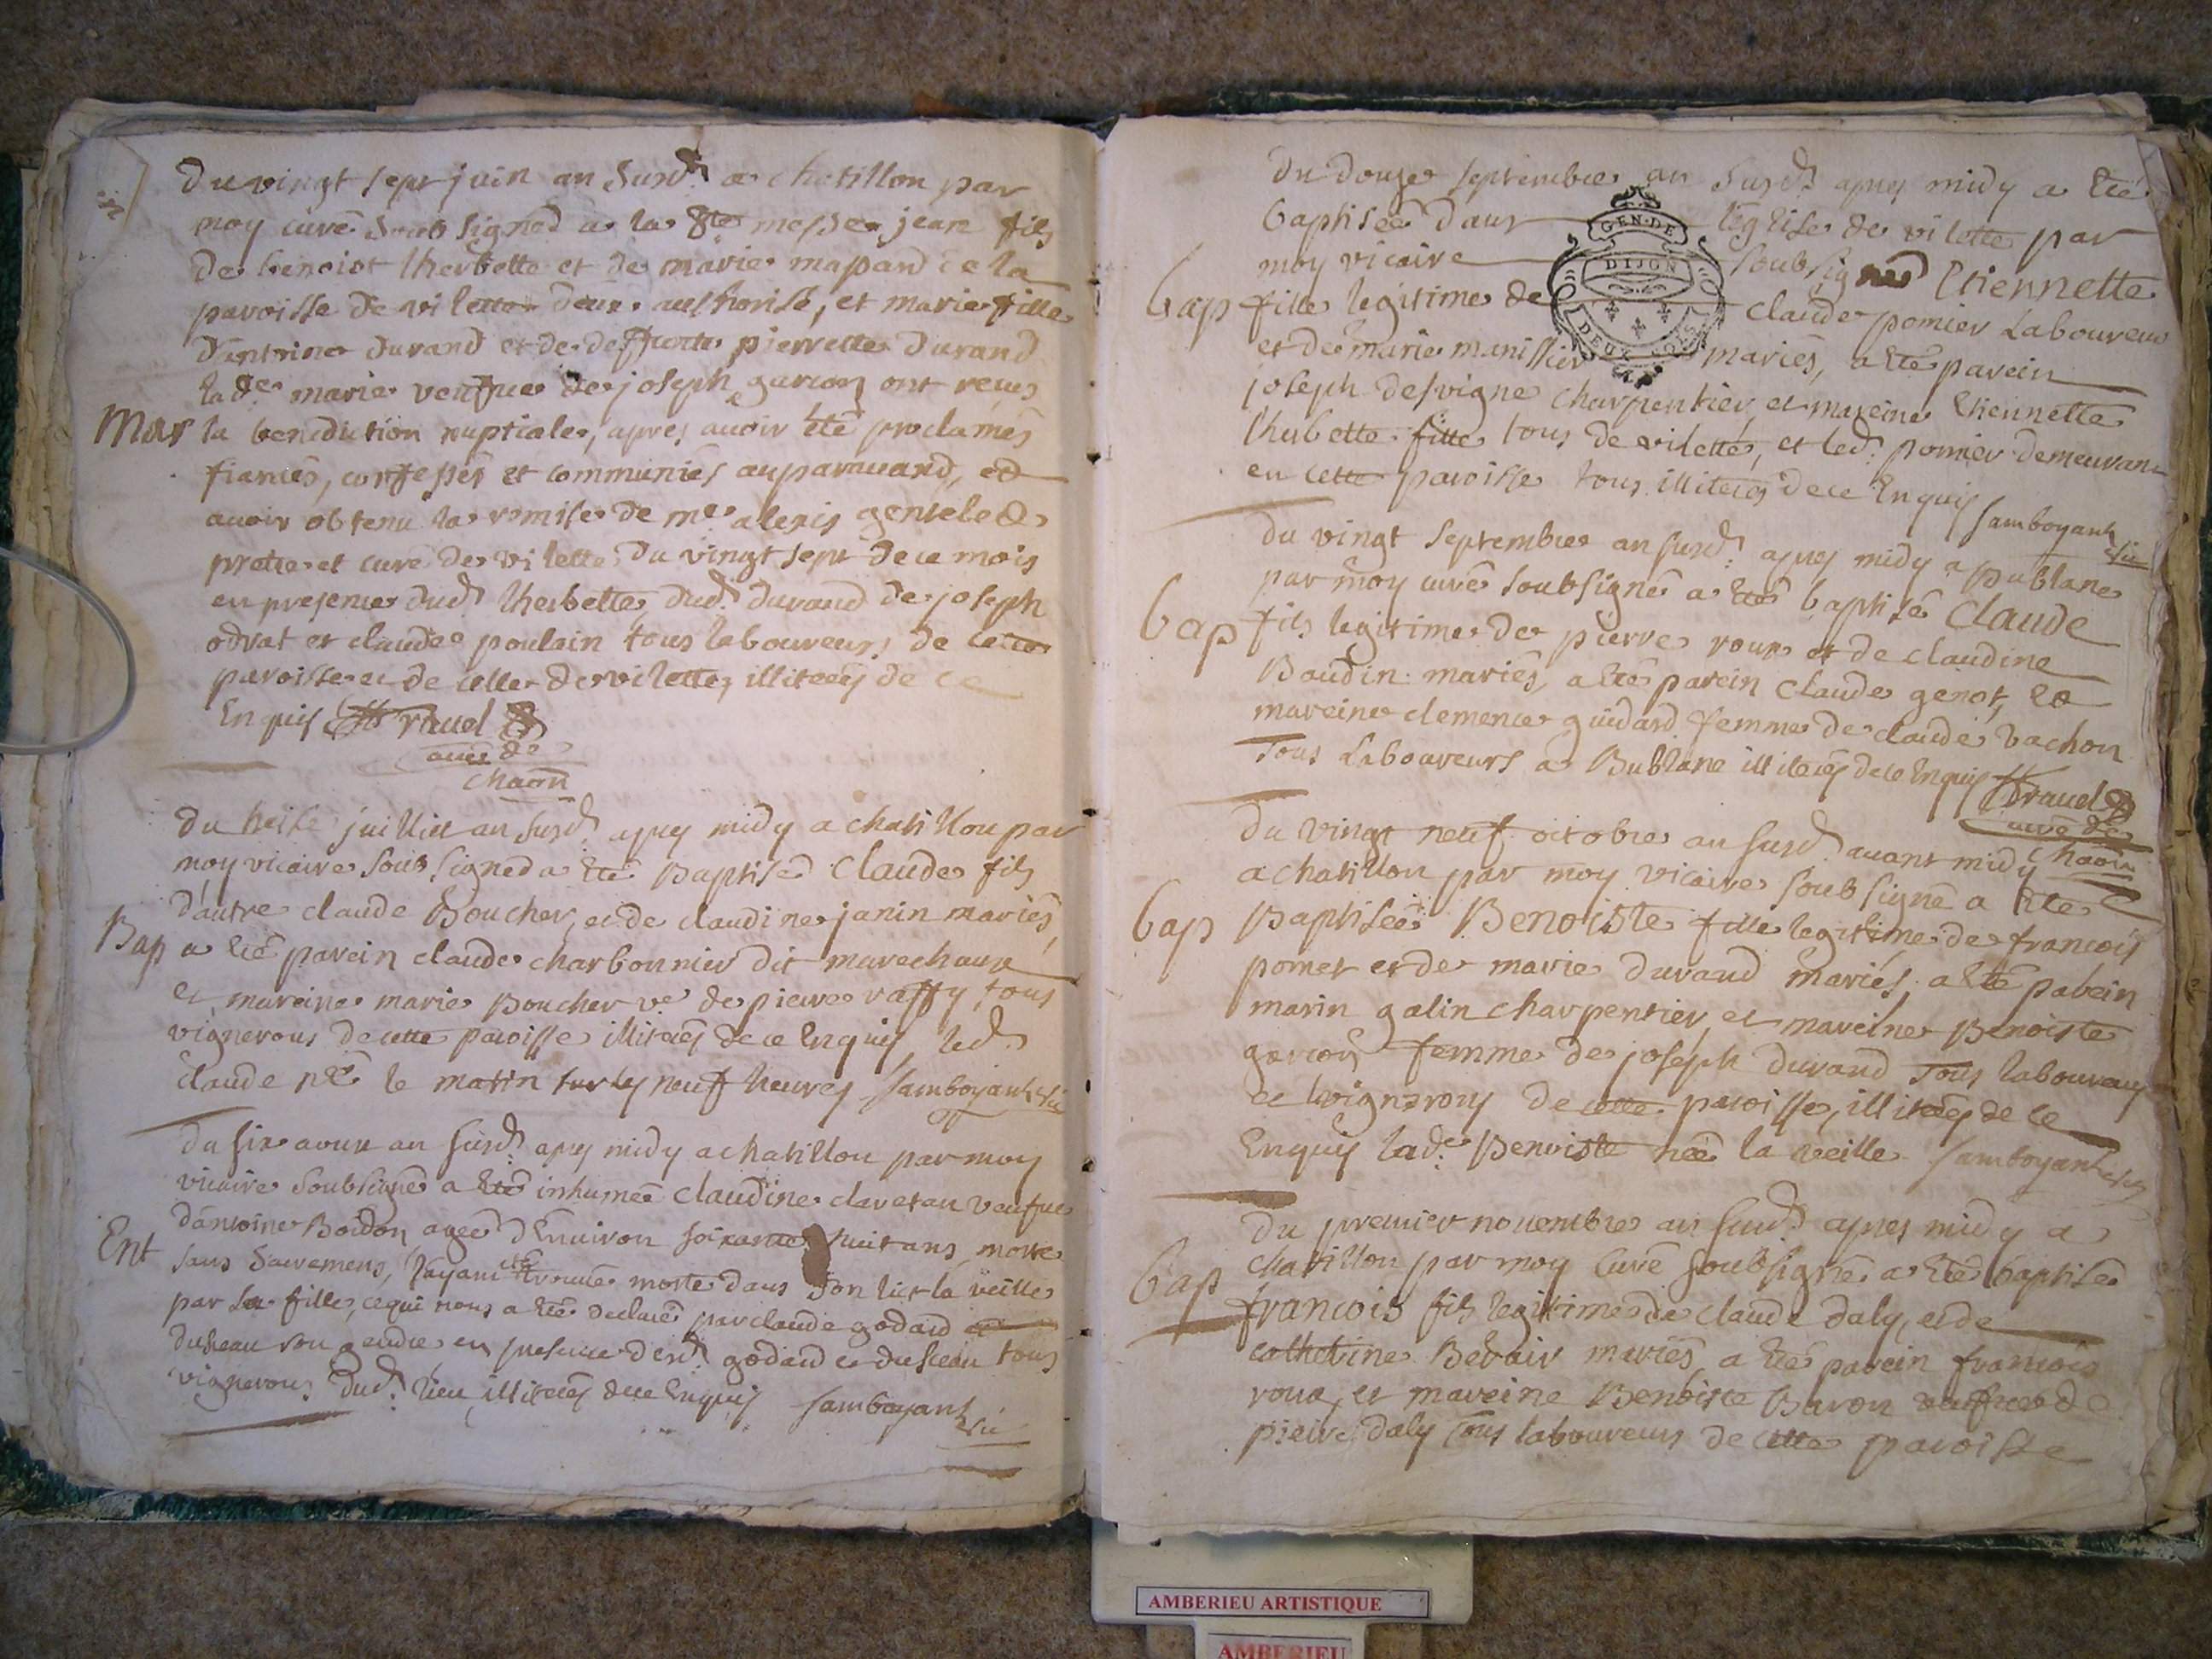 Du vingt sept juin an susd. a chatillon par
moy curé soubsigned a la ste messe jean fils
de benoist lherbette et de marie mapand de la
paroisse de vilette deux authorisé, et marie fille
dantoine durand et de deffuncte pierrette durand
lad.e marie veufue de joseph garcon ont receus
Mar la benediction nuptiale, apres auoir été proclamés
fiancés, confessés et communiés auparauand, et
auoir obtenu la remise de m.e alexis gentelet
pretre et curé de vilette du vingt sept de ce mois
en presence dud. lherbette, dud. durand de joseph
odvat et claude poulain tous laboureurs de cette
paroisse et de celle de vilette, illiterés de ce
Enquis rauel
curé de
chaon
Du treise juillet an susd. apres midy a chatillon par
moy vicaire soubsigned a été Baptisé claude fils
dautre claude Boucher, et de claudine janin mariés,
Bap a été parein claude charbonnier dit marechaux
et mareine marie Boucher v.e de pierre raffy, tous
vignerons de cette paroisse illiterés de ce Enquis, led.
claude né le matin sur les neuf heures Samboyant vic
Du six aoux an susd. apres midy a chatillon par moy
vicaire soubsigné a été inhumée claudine clavetan veufue
dantoine Bordon agée dEnuiron soixante huit ans, morte
Ent sans sacremens, layant été trouuée morte dans son lict la veille
par sa fille, ce qui nous a été declaré par claude godard et
duseau son gendre en presence desd. godard et duseau tous
vignerons dud. lieu, illiterés de ce Enquis Samboyant
vic
Du douze septembre an susd. apres midy a été
baptisée dans léglise de vilette par
moy vicaire soubsigned Etiennette
Bap fille legitime de claude pomier Laboureur
et de marie manissier mariés, a été parein
joseph desvigne charpentier, et mareine Etiennette
lherbette fille tous de vilette, et led. pomier demeurant
en cette paroisse tous illiterés de ce Enquis Samboyant
vic
Du vingt septembre an susd. apres midy a publane
par moy curé soubsigné a été baptisé Claude
Bap fils legitime de pierre roux et de claudine
Baudin mariés, a été parein claude genot, et
mareine clemence guidard femme de claude vachon
Tous Laboureurs a Bublane illiterés de ce Enquis rauel
curé de
chaon
Du vingt neuf octobre an susd. auant midy
a chatillon par moy vicaire soubsigné a été
Bap Baptisée Benoiste fille legitime de francois
pomet et de marie durand mariés, a été parein
marin galin charpentier, et mareine Benoiste
garcon femme de joseph durand Tous laboureurs
et vignerons de cette paroisse, illiterés de ce
Enquis lad.e Benoiste née la veille Samboyant vic
Du premier nouembre an susd. apres midy a
chatillon par moy curé soubsigné a été baptisé
Bap francois fils legitime de claude daly, et de
catherine Beroir mariés, a été parein francois
roux, et mareine Benoiste Baron veufue de
pierre daly Tous laboureurs de cette paroisse
GEN. DE
DIJON
DEUX SOLS
AMBERIEU ARTISTIQUE
AMBERIEU